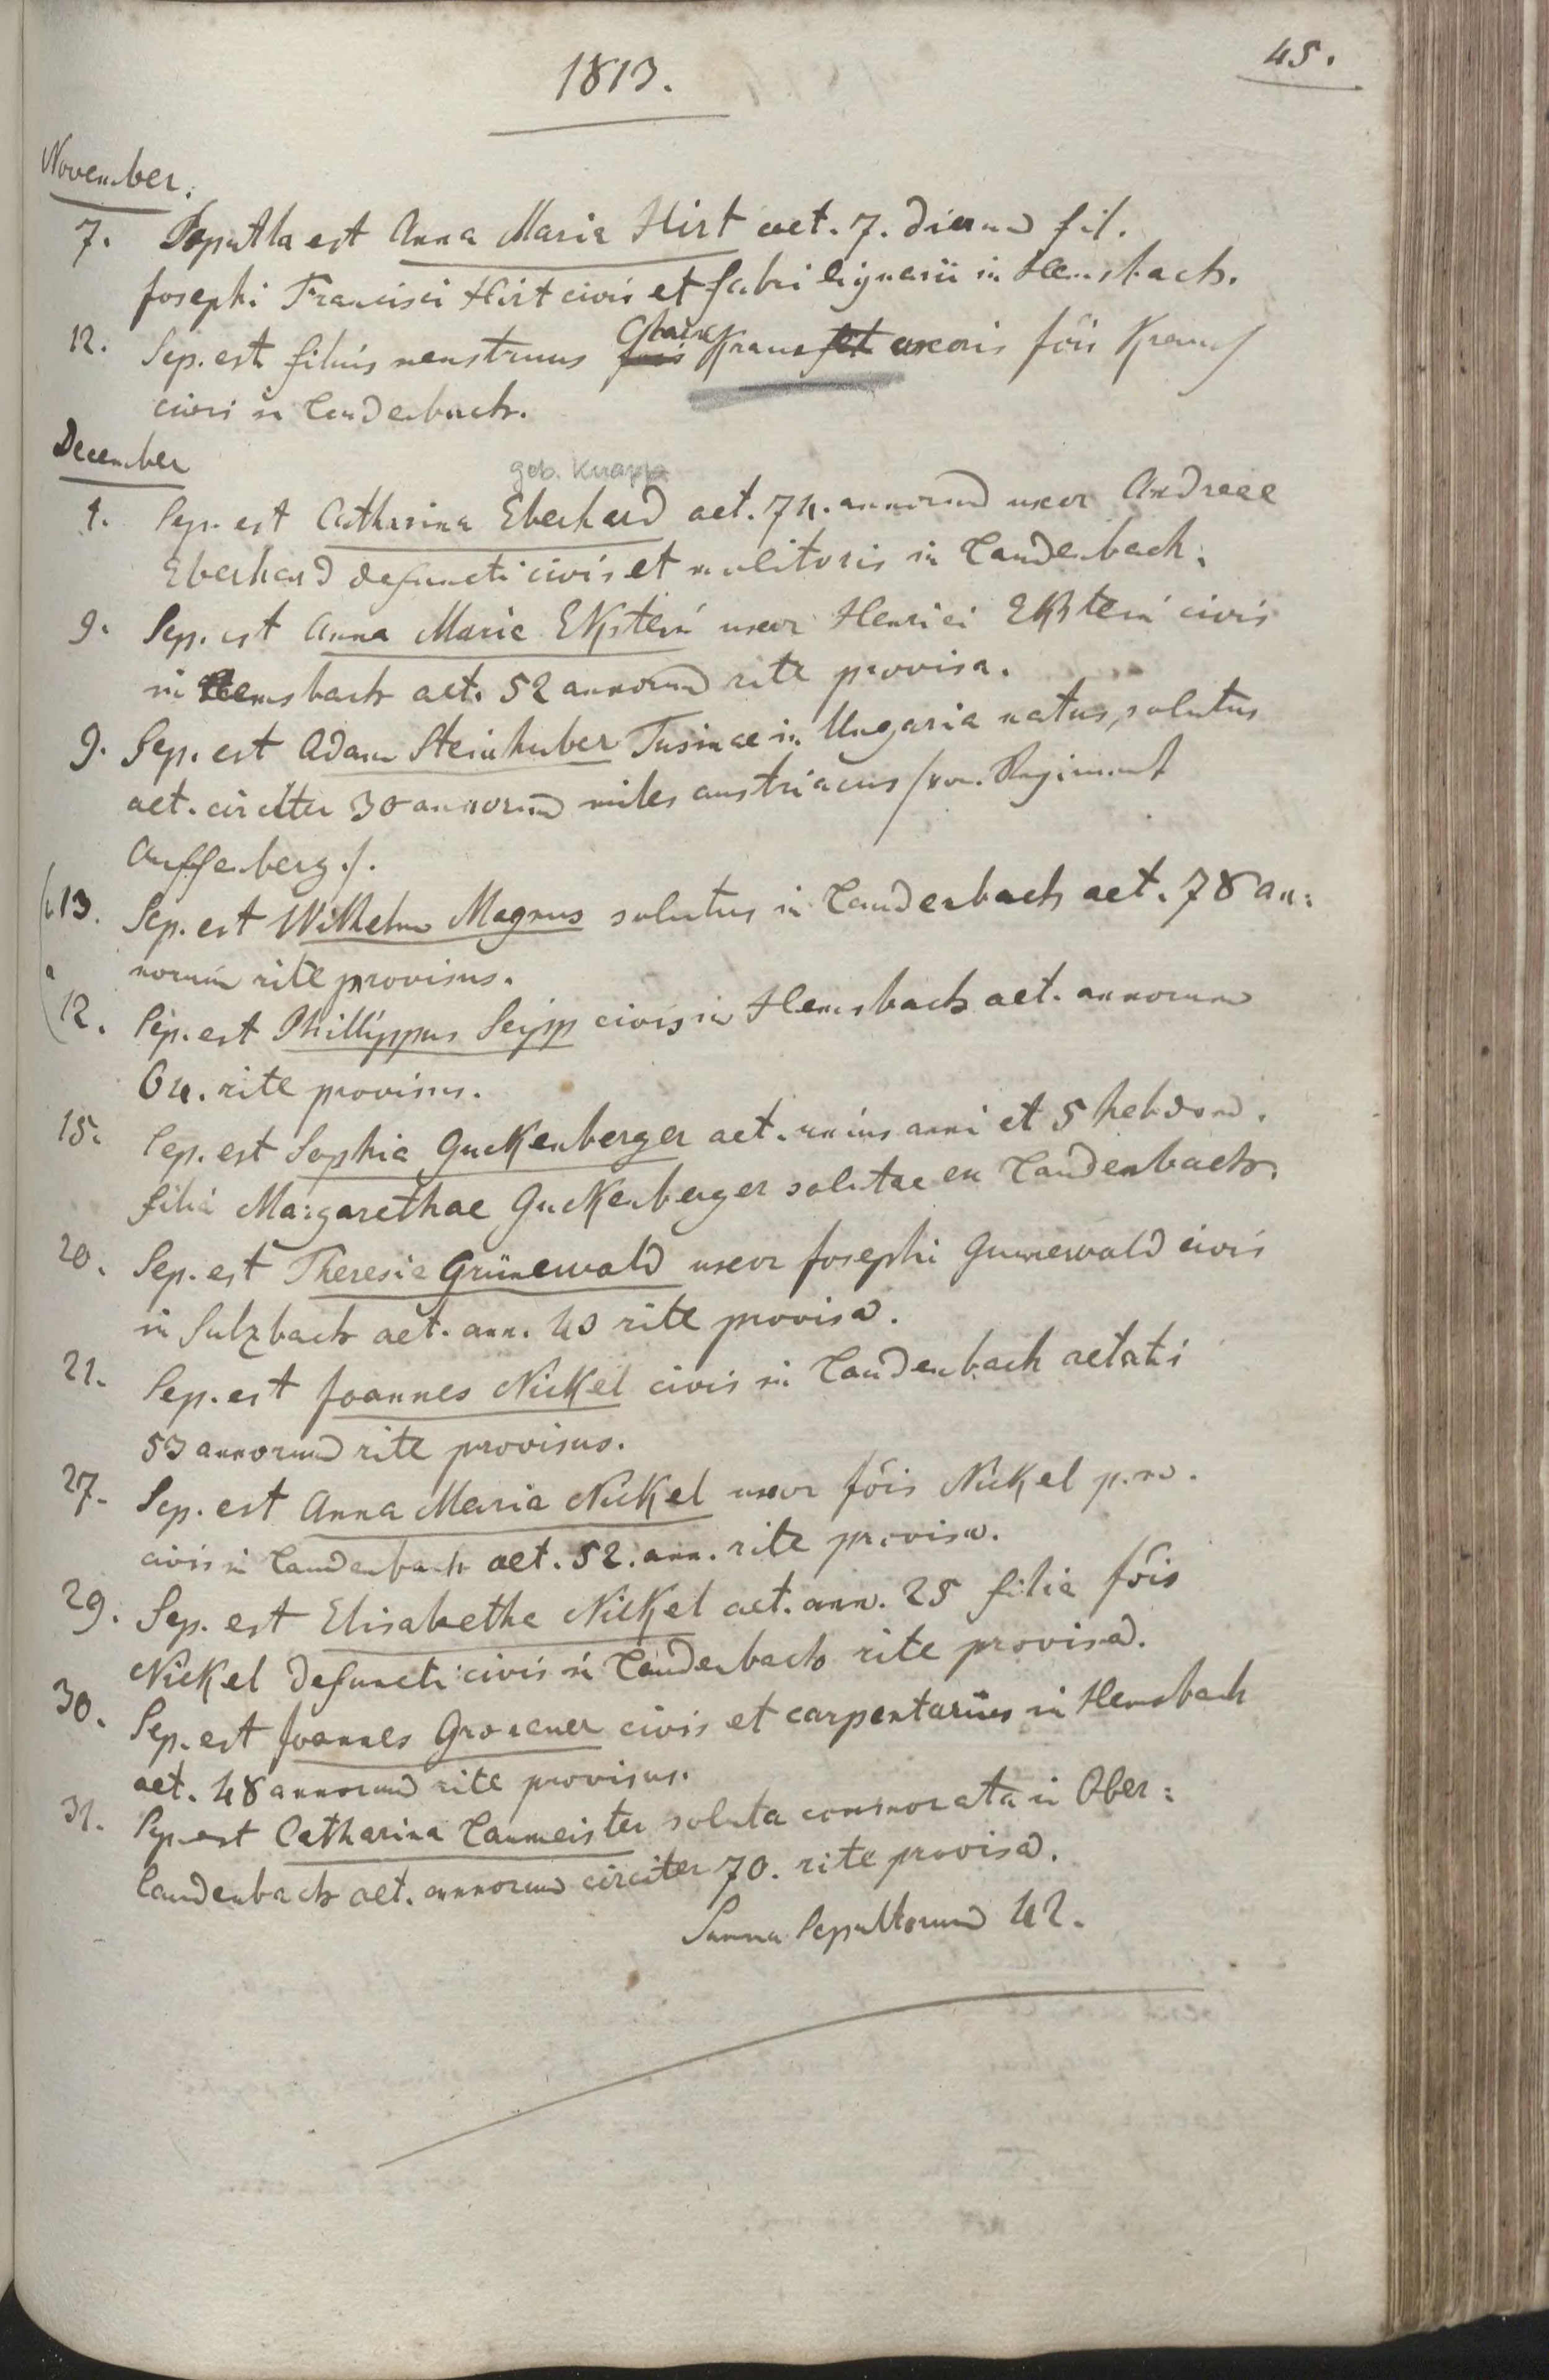 45.
1813.
November.
7. Sepultla est Anna Maria Hirt aet. 7. dierum fil.
Josephi Francisci Hirt civis et fabri lignarii in Hemsbach.
12. Sep. est filius menstruus Kraus uxoris Jõis Kraus
civis in Laudenbach.
December
geb. Knapp
1. Sep. est Catharina Eberhard aet. 74. annorum uxor Andreae
Eberhard defuncti civis et molitoris in Laudenbach.
9. Sep. est Anna Maria Ekstein uxor Henrici Ekstein civis
in Hemsbach aet. 52 annorum rite provisa.
9. Sep. est Adam Steinhuber Tusinae in Ungaria natus, solutus
aet. circitter 30 annorum miles austriacus /: von Regiment
Auffenberg :/.
b 13. Sep. est Wilhelm Magnus solutus in Laudenbach aet. 78 an:
norum rite provisus.
a 12. Sep. est Phillippus Seipp civis in Hemsbach aet. annorum
64. rite provisus.
15. Sep. est Sophia Guckenberger aet. unius anni et 5 hebdom.
filia Margarethae Guckenberger solutae ex Laudenbach.
20. Sep. est Theresia Grünewald uxor Josephi Grunewald civis
in Sulzbach aet. ann. 40 rite provisa.
21. Sep. est Joannes Nickel civis in Laudenbach aetatis
53 annorum rite provisus.
27. Sep. est Anna Maria Nickel uxor Jõis Nickel p.m.
civis in Laudenbach aet. 52. ann. rite provisa.
29. Sep. est Elisabetha Nickel aet. ann. 25 filia Jõis
Nickel defuncti civis in Laudenbach rite provisa.
30. Sep. est Joannes civis et carpentarius in Hemsbach
aet. 48 annorum rite provisus.
31. Sep. est Catharina Laumeister soluta commorata in Ober:
laudenbach aet. annorum circiter 70. rite provisa.
Summa Sepultorum 42.